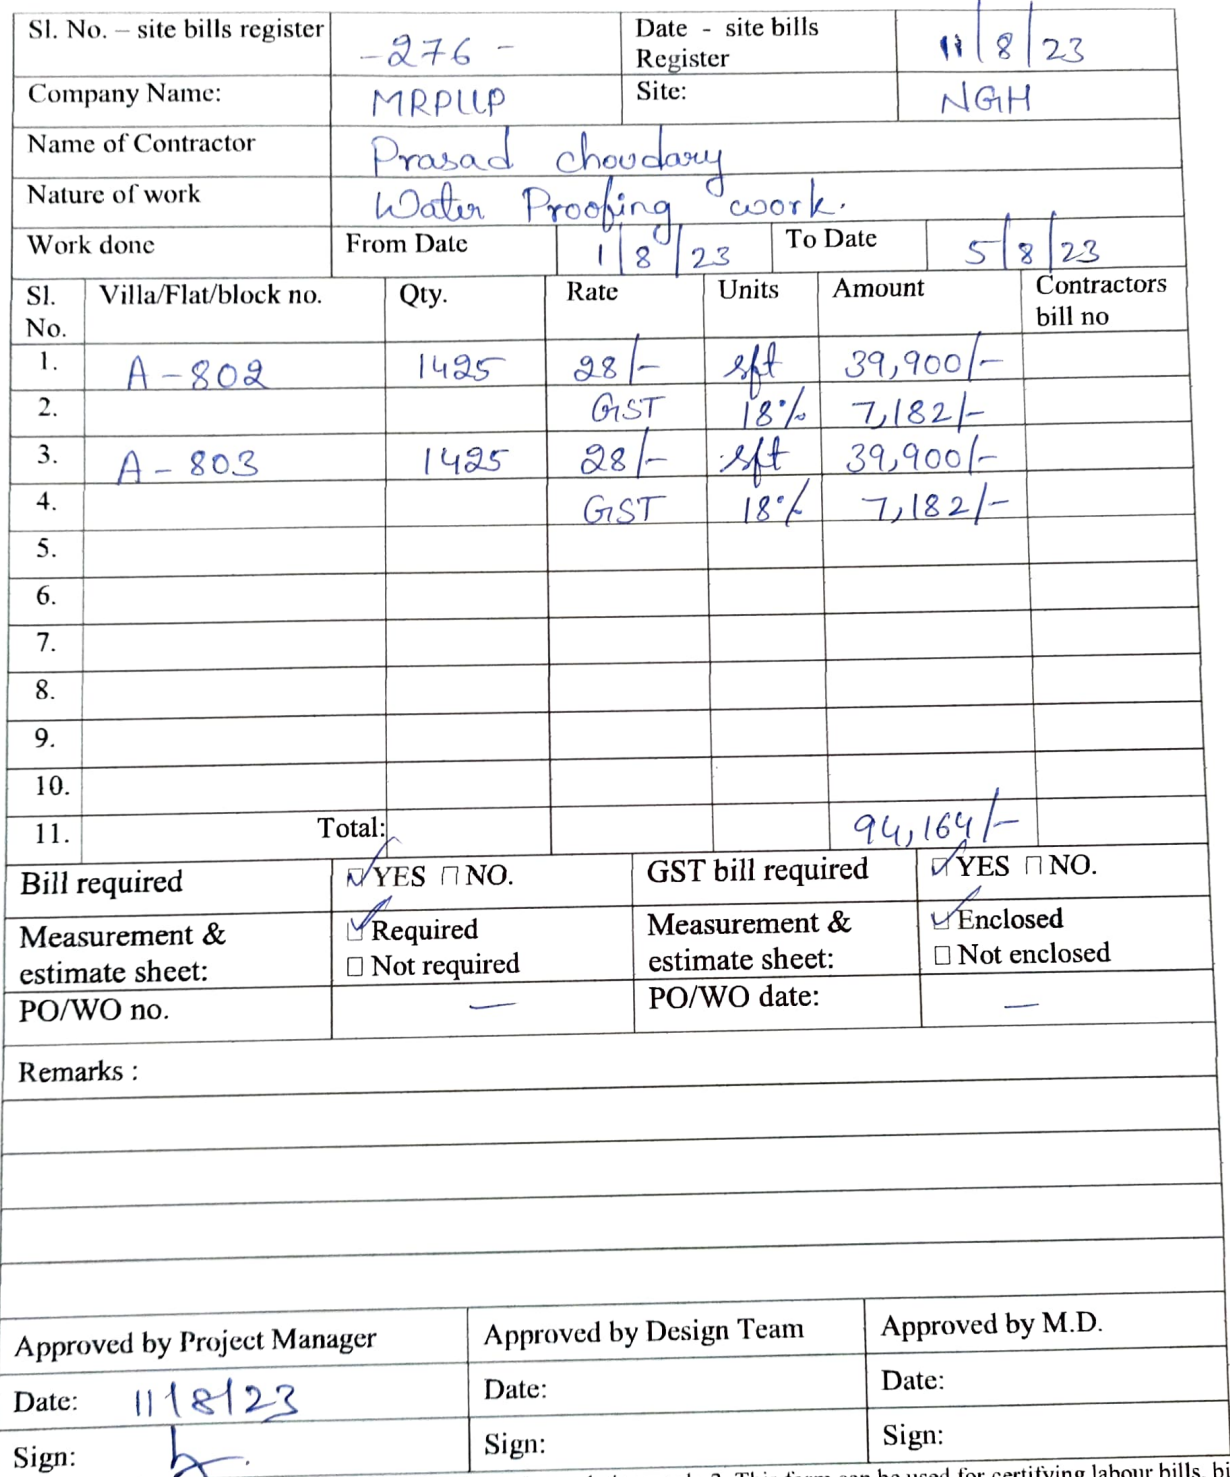 Sl. No. – site bills register -276- Date - site bills Register 11/8/23
Company Name: MRPLLP Site: NGH
Name of Contractor Prasad choudary
Nature of work Water Proofing work.
Work done From Date 1/8/23 To Date 5/8/23
Sl. No. Villa/Flat/block no. Qty. Rate Units Amount Contractors bill no
1. A-802 1425 28/- sft 39,900/-
2. GST 18% 7,182/-
3. A-803 1425 28/- sft 39,900/-
4. GST 18% 7,182/-
5.
6.
7.
8.
9.
10.
11. Total: 94,164/-
Bill required ☑YES ☐NO. GST bill required ☑YES ☐NO.
Measurement & estimate sheet: ☑Required ☐Not required Measurement & estimate sheet: ☑Enclosed ☐Not enclosed
PO/WO no. — PO/WO date: —
Remarks :
Approved by Project Manager Approved by Design Team Approved by M.D.
Date: 11/8/23 Date: Date:
Sign: Sign: Sign:
This form can be used for certifying labour bills,